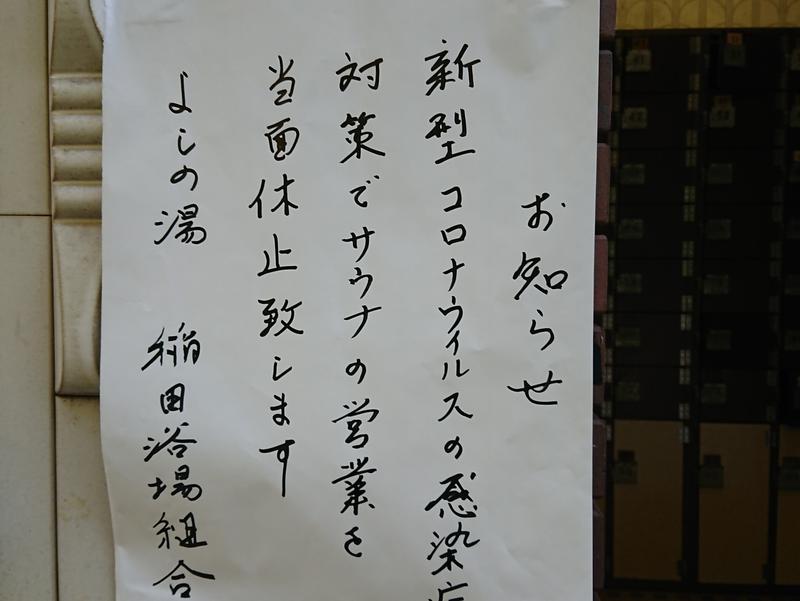 お知らせ
新型コロナウィルスの感染症
対策でサウナの営業を
当面休止致します
よしの湯 稲田浴場組合